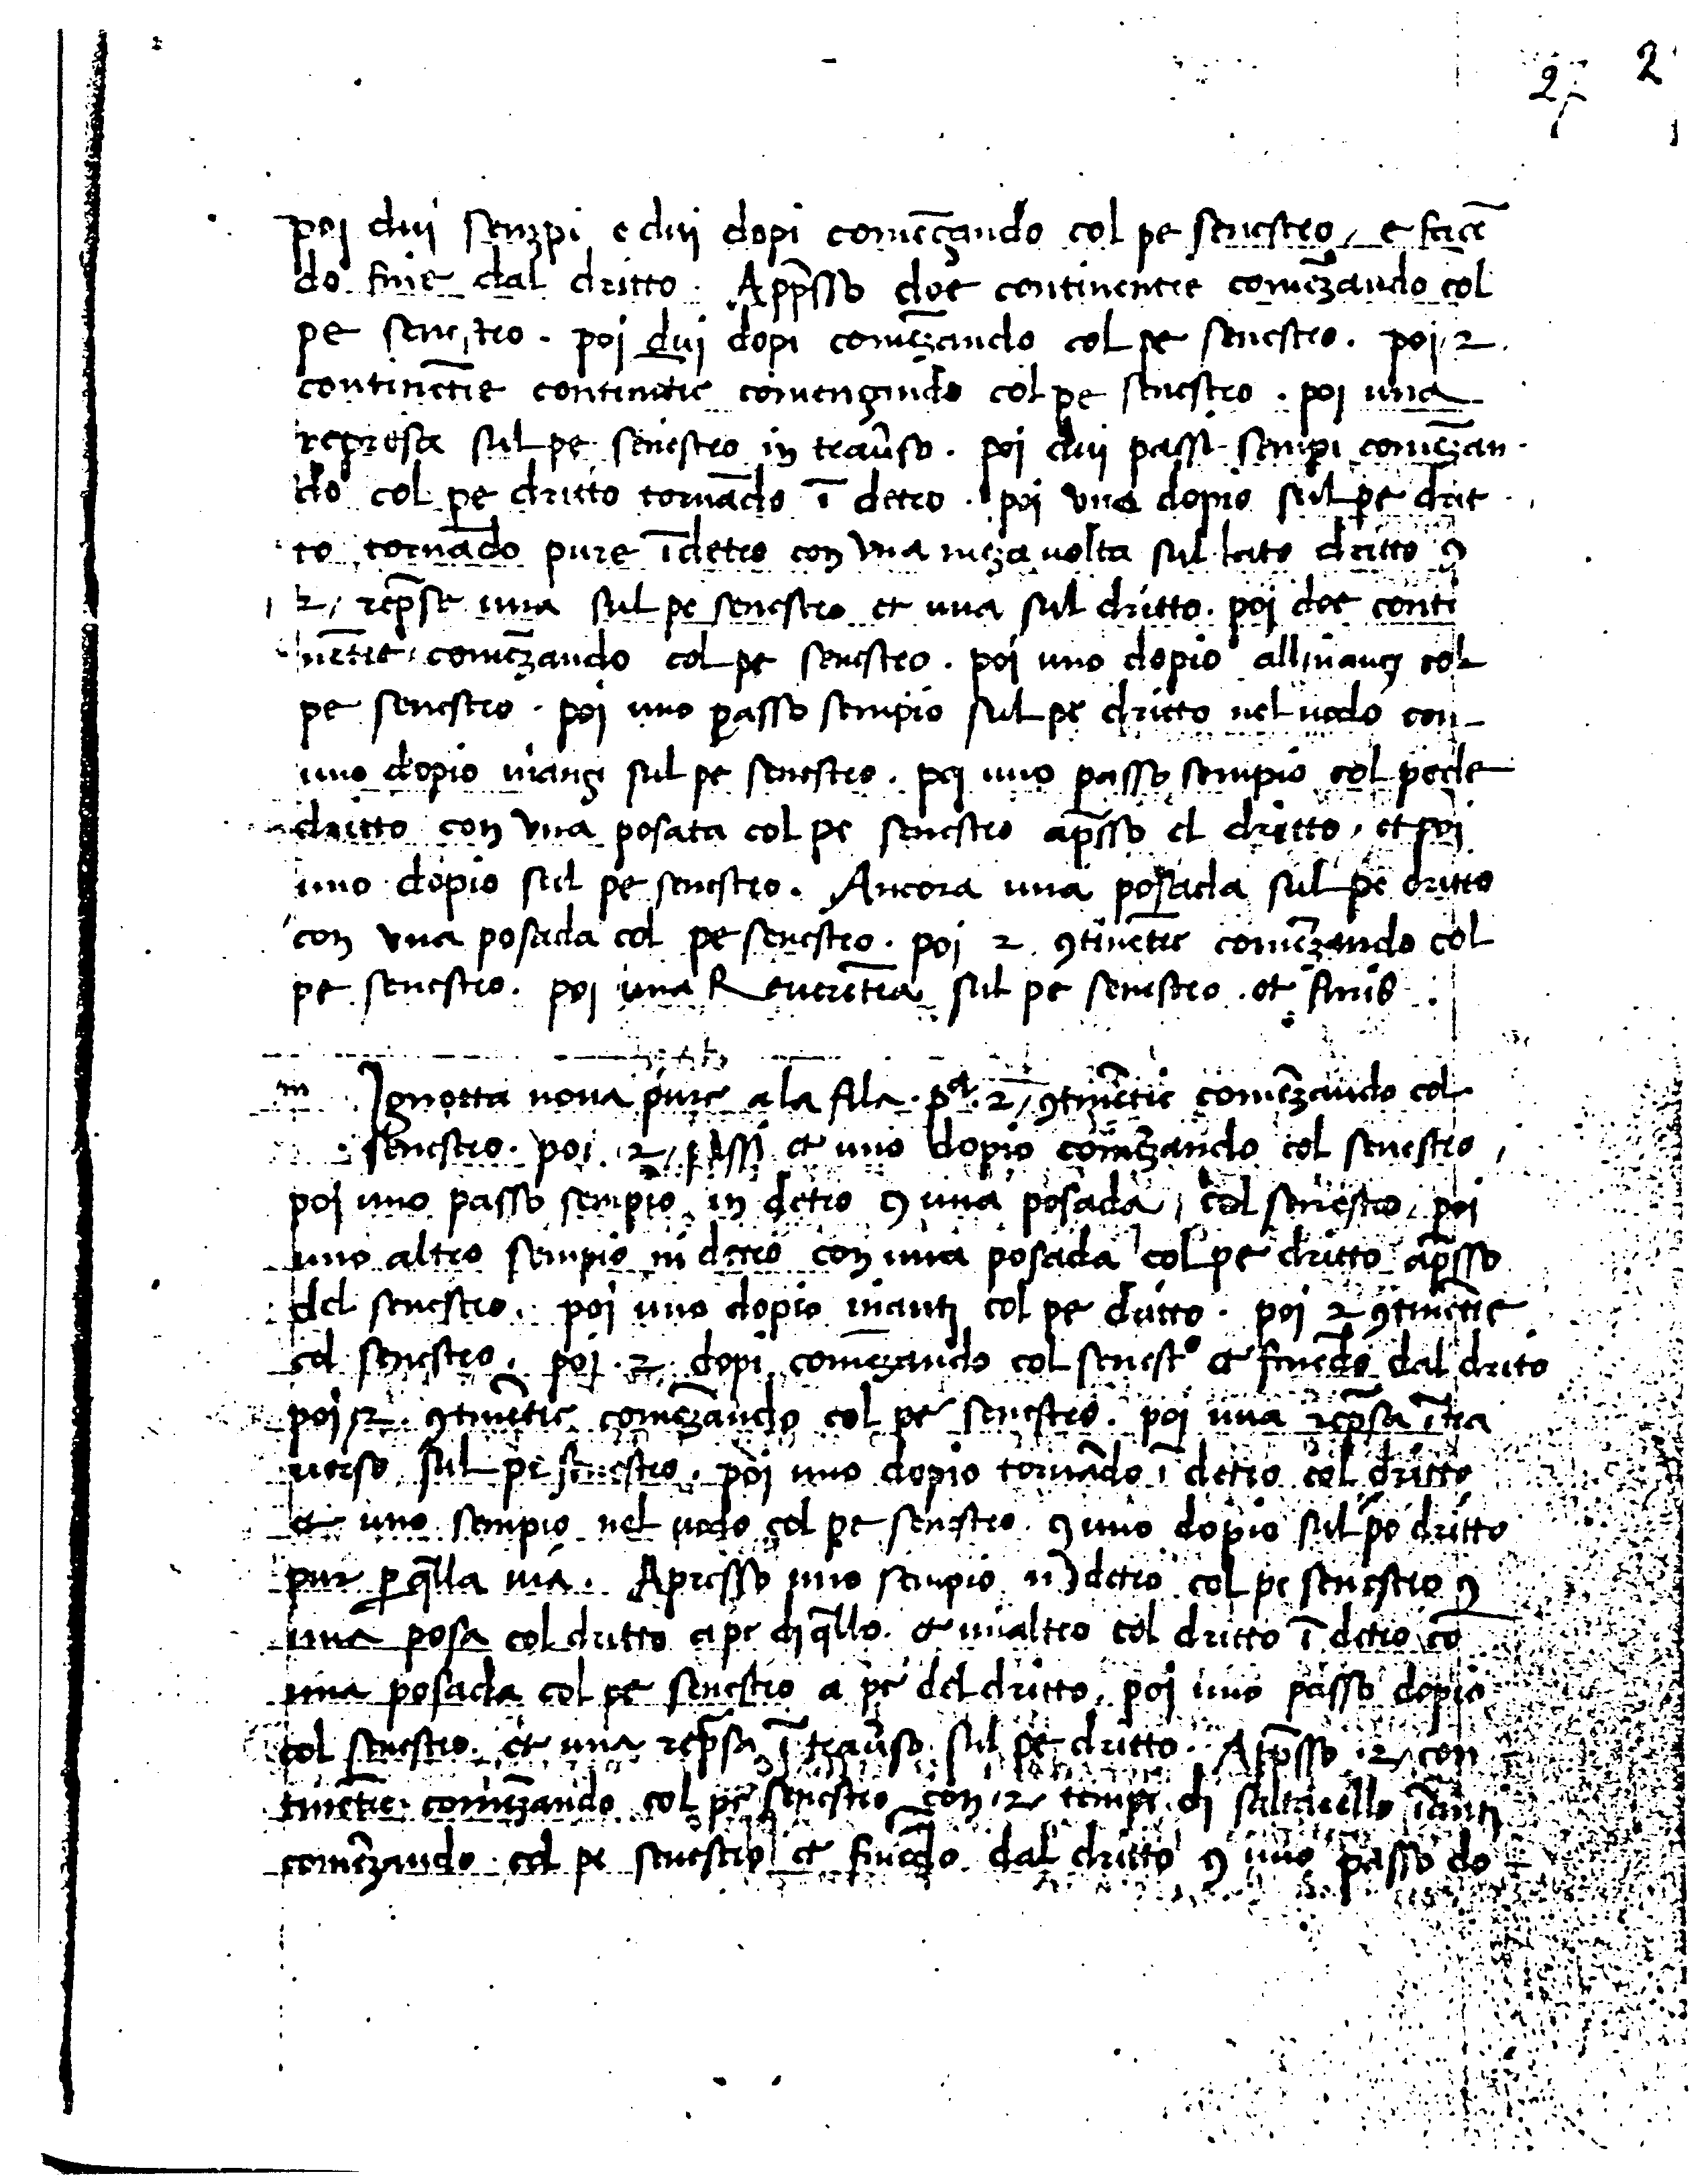 27 2
poj duj senzpi e duj dopi comēçando col pe senestro, e facē
do fine dal dritto. App̄sso doe continentie comēzando col
pe senestro. poj duj dopi comēzando col pe senestro. poj 2
continētie continētie comenzando col pe senestro. poj una
represa sul pe senestro in trav̄so. poj duj passi sempi comēzan
do col pe dritto tornādo ī detro. poj vno dopio sul pe drit
to tornādo pure īdetro con vna meza volta sul lato dritto ꝯ
2, rep̄se una sul pe senestro et una sul dritto. poj doe conti
nētie comēzando col pe senestro. poj uno dopio allinanzj col
pe senestro. poj uno passo sempio sul pe dritto nel uodo con
uno dopio inanzj sul pe senestro. poj uno passo sempio col pede
dritto con vna posata col pe senestro ap̄sso el dritto, et poj
uno dopio sul pe senestro. Ancora una posada sul pe dritto
con vna posada col pe senestro. poj 2 ꝯtinētie comēzando col
pe senestro. poj una Reuerētia sul pe senestro. et finis.
Ignotta nova pure a la fila. pᵃ. 2, ꝯtinētie comēzando col
senestro. poi 2, passi et uno dopio comēzando col senestro,
poj uno passo sempio in detro ꝯ una posada, col senestro, poj
uno altro sempio in detro con una posada col pe dritto ap̄sso
del senestro. poj uno dopio inantj col pe dritto. poj 2 ꝯtinētie
col senestro. poj 2 dopi comēzando col senestº et finēdo dal drito
poj 2. ꝯtinētie comēzando col pe senestro. poj una rep̄sa ī tra
uerso sul pe senestro. poj uno dopio tornādo ī detro col dritto
et uno sempio nel uodo col pe senestro ꝯ uno dopio sul pe dritto
pur ꝑ q̄lla uia. Apresso uno sempio in detro col pe senestro ꝯ
una posa col dritto a pe dj q̄llo. et unaltro col dritto ī detro cō
una posada col pe senestro a pe del dritto, poj uno passo dopio
col senestro. et una rep̄sa ī trav̄so sul pe dritto. App̄sso 2, con
tinētie comēzando col pe senestro con 2 tempi dj saltarello īantj
comēzando col pe senestro et finēdo dal dritto ꝯ uno passo do